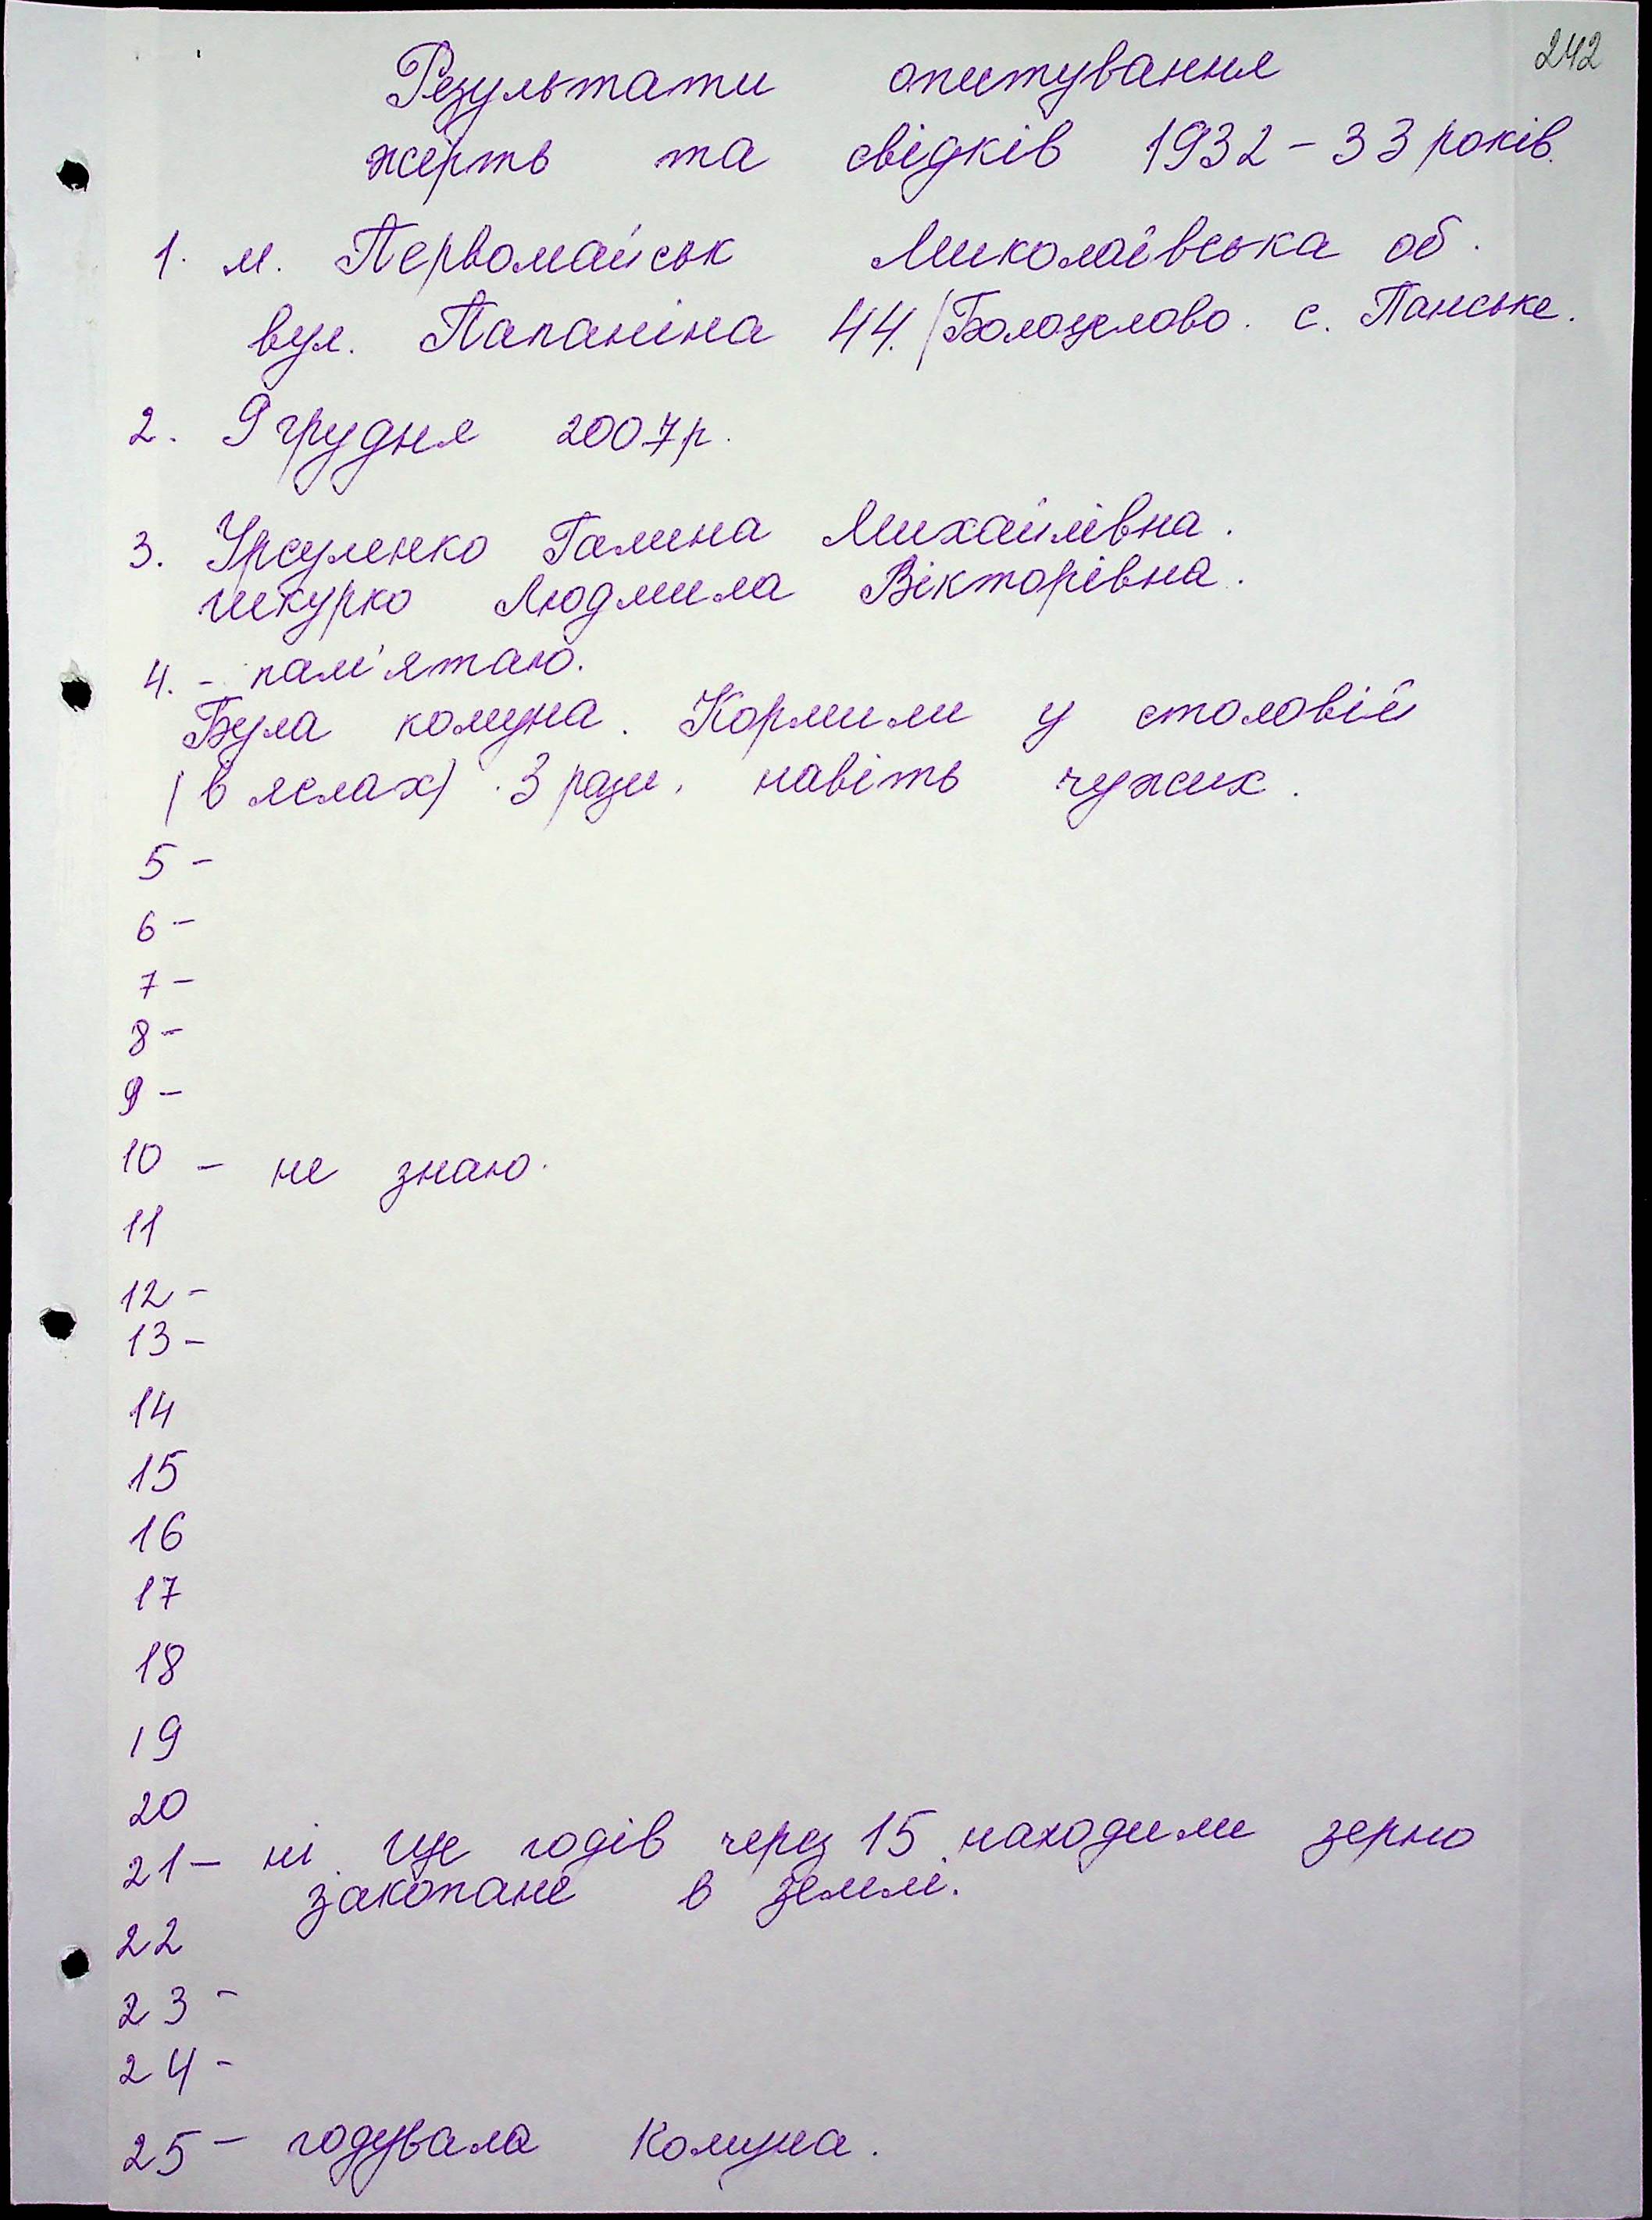 242
Результати опитування
жертв та свідків 1932-33 років.
1. м. Первомайськ Миколаївська об.
вул. Папаніна 44. (Болоцелово. с. Панське.
2. 9 грудня 2007 р.
3. Урсуленко Галина Михайлівна.
Шкурко Людмила Вікторівна.
4. - пам'ятаю.
Була комуна. Кормили у столовій
(в яслах) 3 рази, навіть чужих.
5 -
6 -
7 -
8 -
9 -
10 - не знаю.
11
12 -
13 -
14
15
16
17
18
19
20
21 - ні. Ще годів через 15 находили зерно
закопане в землі.
22
23 -
24 -
25 - годувала Комуна.